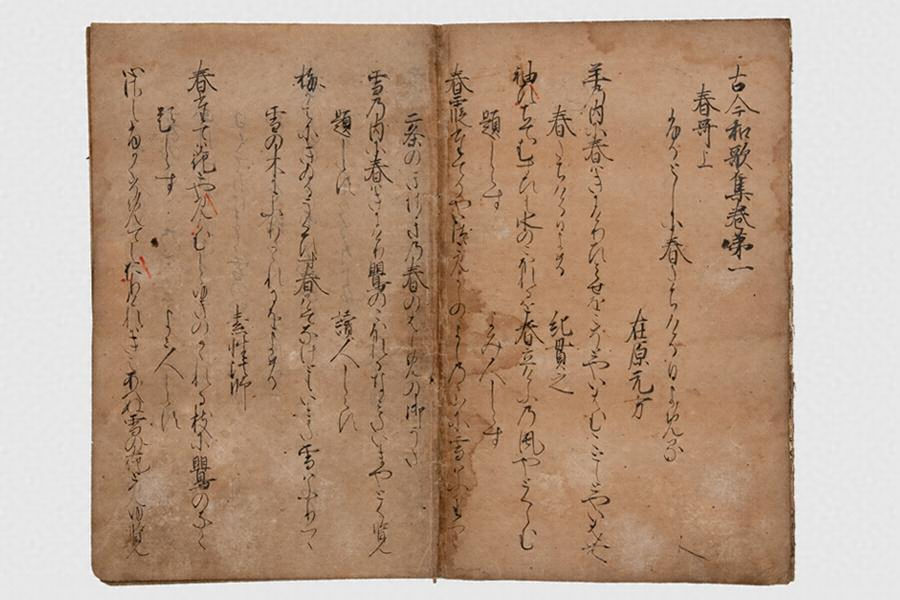 古今和歌集巻第一
春哥上
ふるとしに春たちける日よめる
在原元方
年の内に春はきにけりひとゝせをこそとやいはむことしとやいはむ
春たちける日よめる　紀貫之
袖ひちてむすひし水のこほれるを春立けふの風やとくらむ
題しらす　よみ人しらす
春霞たてるやいつこみよしのゝよしのゝ山に雪はふりつゝ
二条のきさきの春のはしめの御うた
雪乃内に春はきにけり鶯のこほれるなみたいまやとく覧
題しらす　讀人しらす
梅かえにきゐるうくひす春かけてなけともいまた雪はふりつゝ
雪の木にふりかゝれるをよめる
素性法師
春たては花とやみらむしらゆきのかゝれる枝に鶯のなく
題しらす　よみ人しらす
心さしふかくそめてしをりけれはきえあへぬ雪の花とみゆ覧